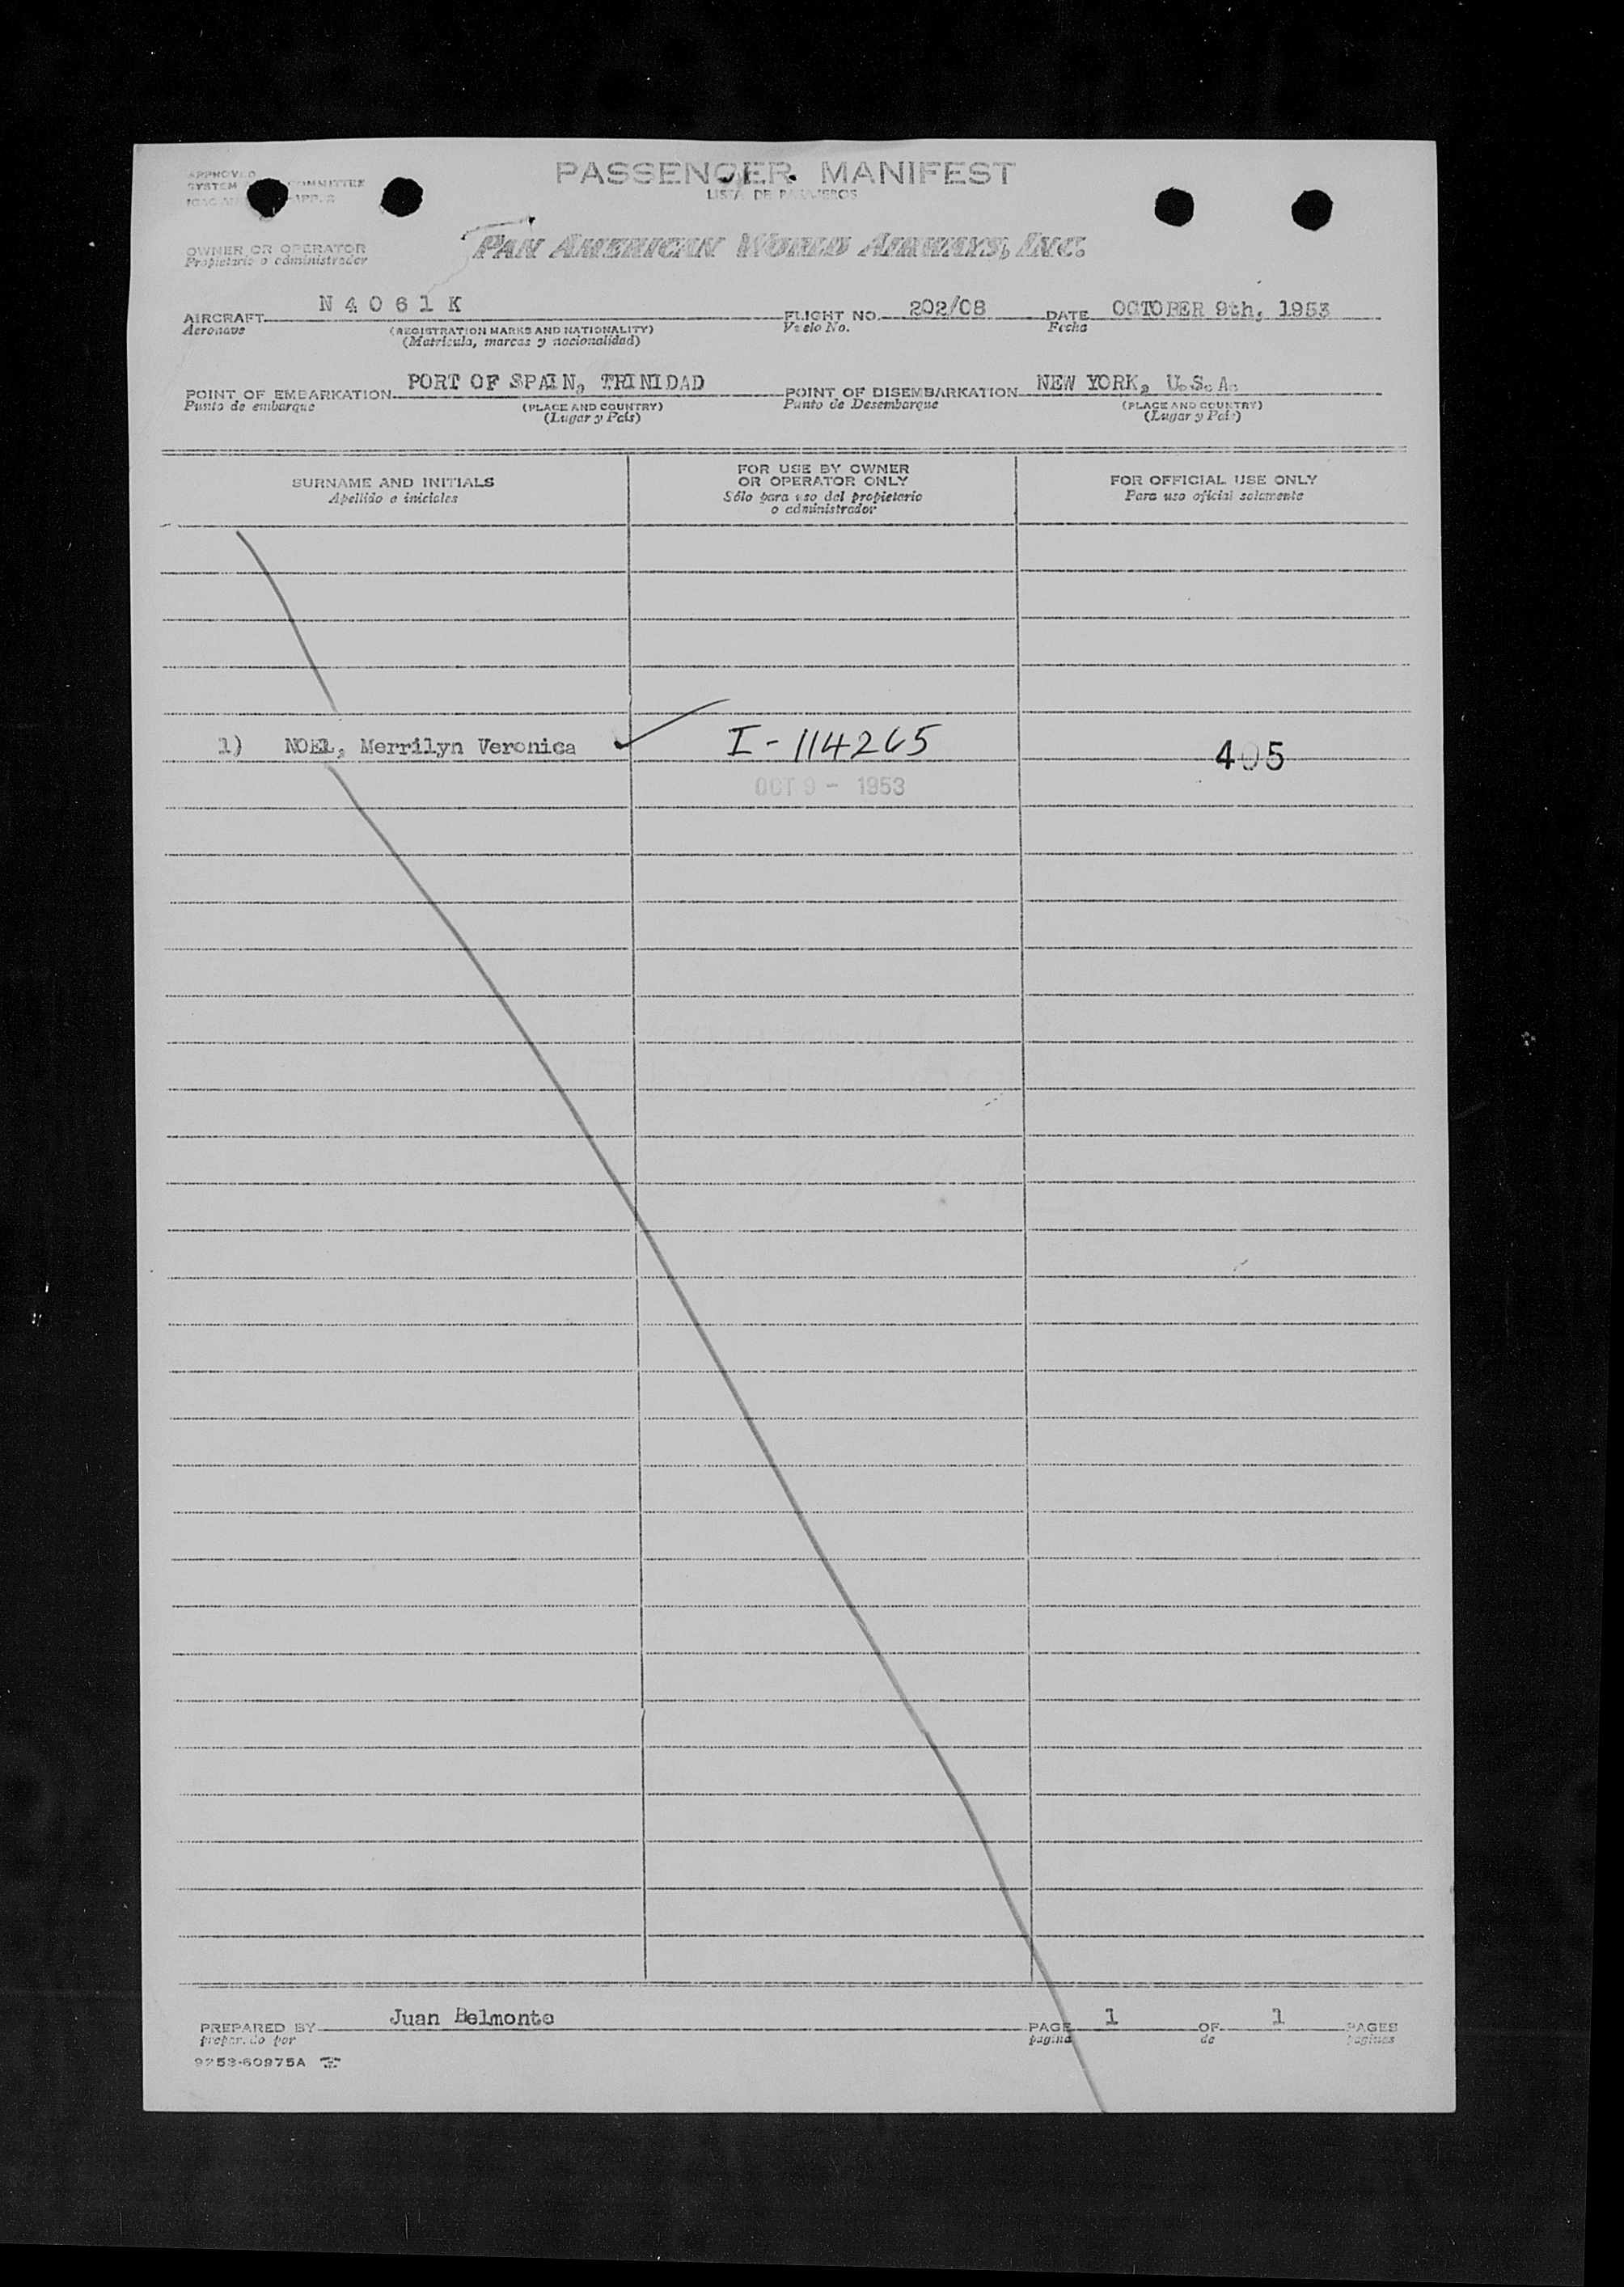 PASSENGER MANIFEST
LISTA DE PASAJEROS
APPROVED
SYSTEM COMMITTEE
OWNER OR OPERATOR
Propietario o administrador
PAN AMERICAN WORLD AIRWAYS, INC.
AIRCRAFT N 4 0 6 1 K FLIGHT NO. 202/08 DATE OCTOBER 9th, 1953
Aeronave (REGISTRATION MARKS AND NATIONALITY) Vuelo No. Fecha
(Matricula, marcas y nacionalidad)
POINT OF EMBARKATION PORT OF SPAIN, TRINIDAD POINT OF DISEMBARKATION NEW YORK, U.S.A.
Punto de embarque (PLACE AND COUNTRY) Punto de Desembarque (PLACE AND COUNTRY)
(Lugar y País) (Lugar y País)
SURNAME AND INITIALS
Apellido e iniciales
FOR USE BY OWNER
OR OPERATOR ONLY
Sólo para uso del propietario
o administrador
FOR OFFICIAL USE ONLY
Para uso oficial solamente
1) NOEL, Merrilyn Veronica I-114265 405
OCT 9 - 1953
PREPARED BY Juan Belmonte PAGE 1 OF 1 PAGES
preparado por pagina de paginas
9253-60975A